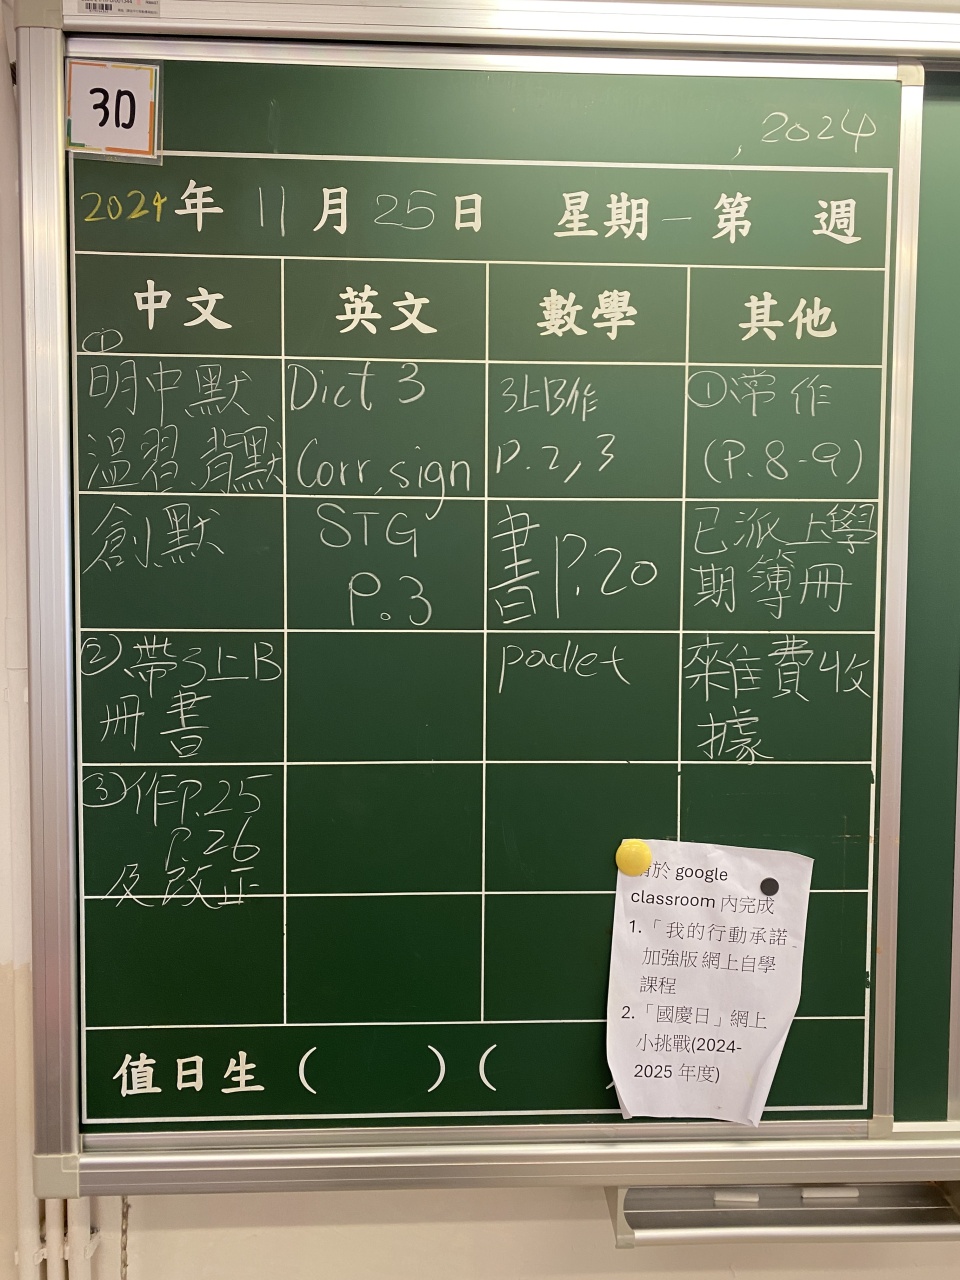 3D
, 2024
2024年 11月25日 星期一 第 週
中文 英文 數學 其他
①
明中默
溫習、背默
創默
②帶3上B
冊書
③作P.25
P.26
及改正
Dict 3
Corr, sign
STG
P.3
3上B作
P.2,3
書P.20
padlet
①常作
(P.8-9)
已派上學
期簿冊
雜費收
據
於 google
classroom 內完成
1.「我的行動承諾
加強版 網上自學
課程
2.「國慶日」網上
小挑戰(2024-
2025 年度)
值日生 ( ) (